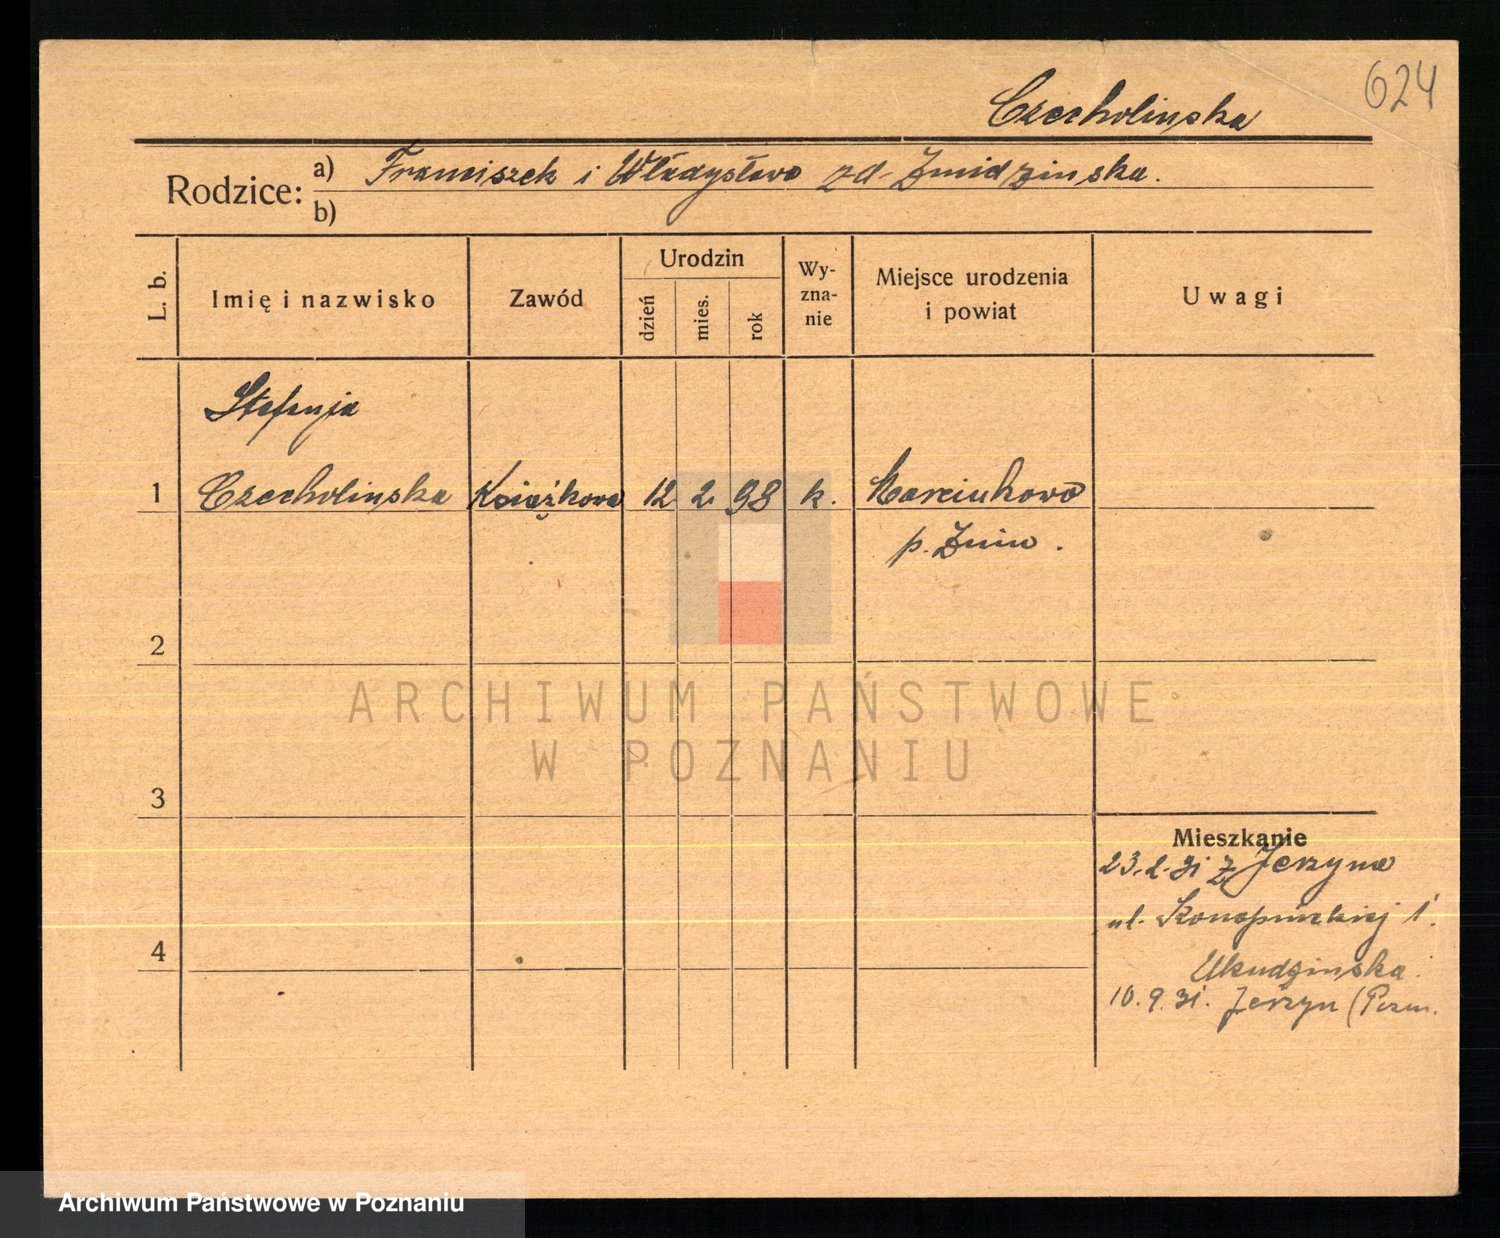 624
Czecholinska
Rodzice:
a) Franciszek i Władysława zd. Żmidzinska.
b)
L. b.
Imię i nazwisko
Zawód
Urodzin
dzień
mies.
rok
Wy-
zna-
nie
Miejsce urodzenia
i powiat
Uwagi
Stefanja
1 Czecholinska Książkowa 12 2. 98 k. Marcinkowo
p. Żnin.
2
3
4
Mieszkanie
23.2.31 z Jerzyna
ul. Konopnickiej 1.
10.9.31. Jerzyn
ARCHIWUM PAŃSTWOWE
W POZNANIU
Archiwum Państwowe w Poznaniu